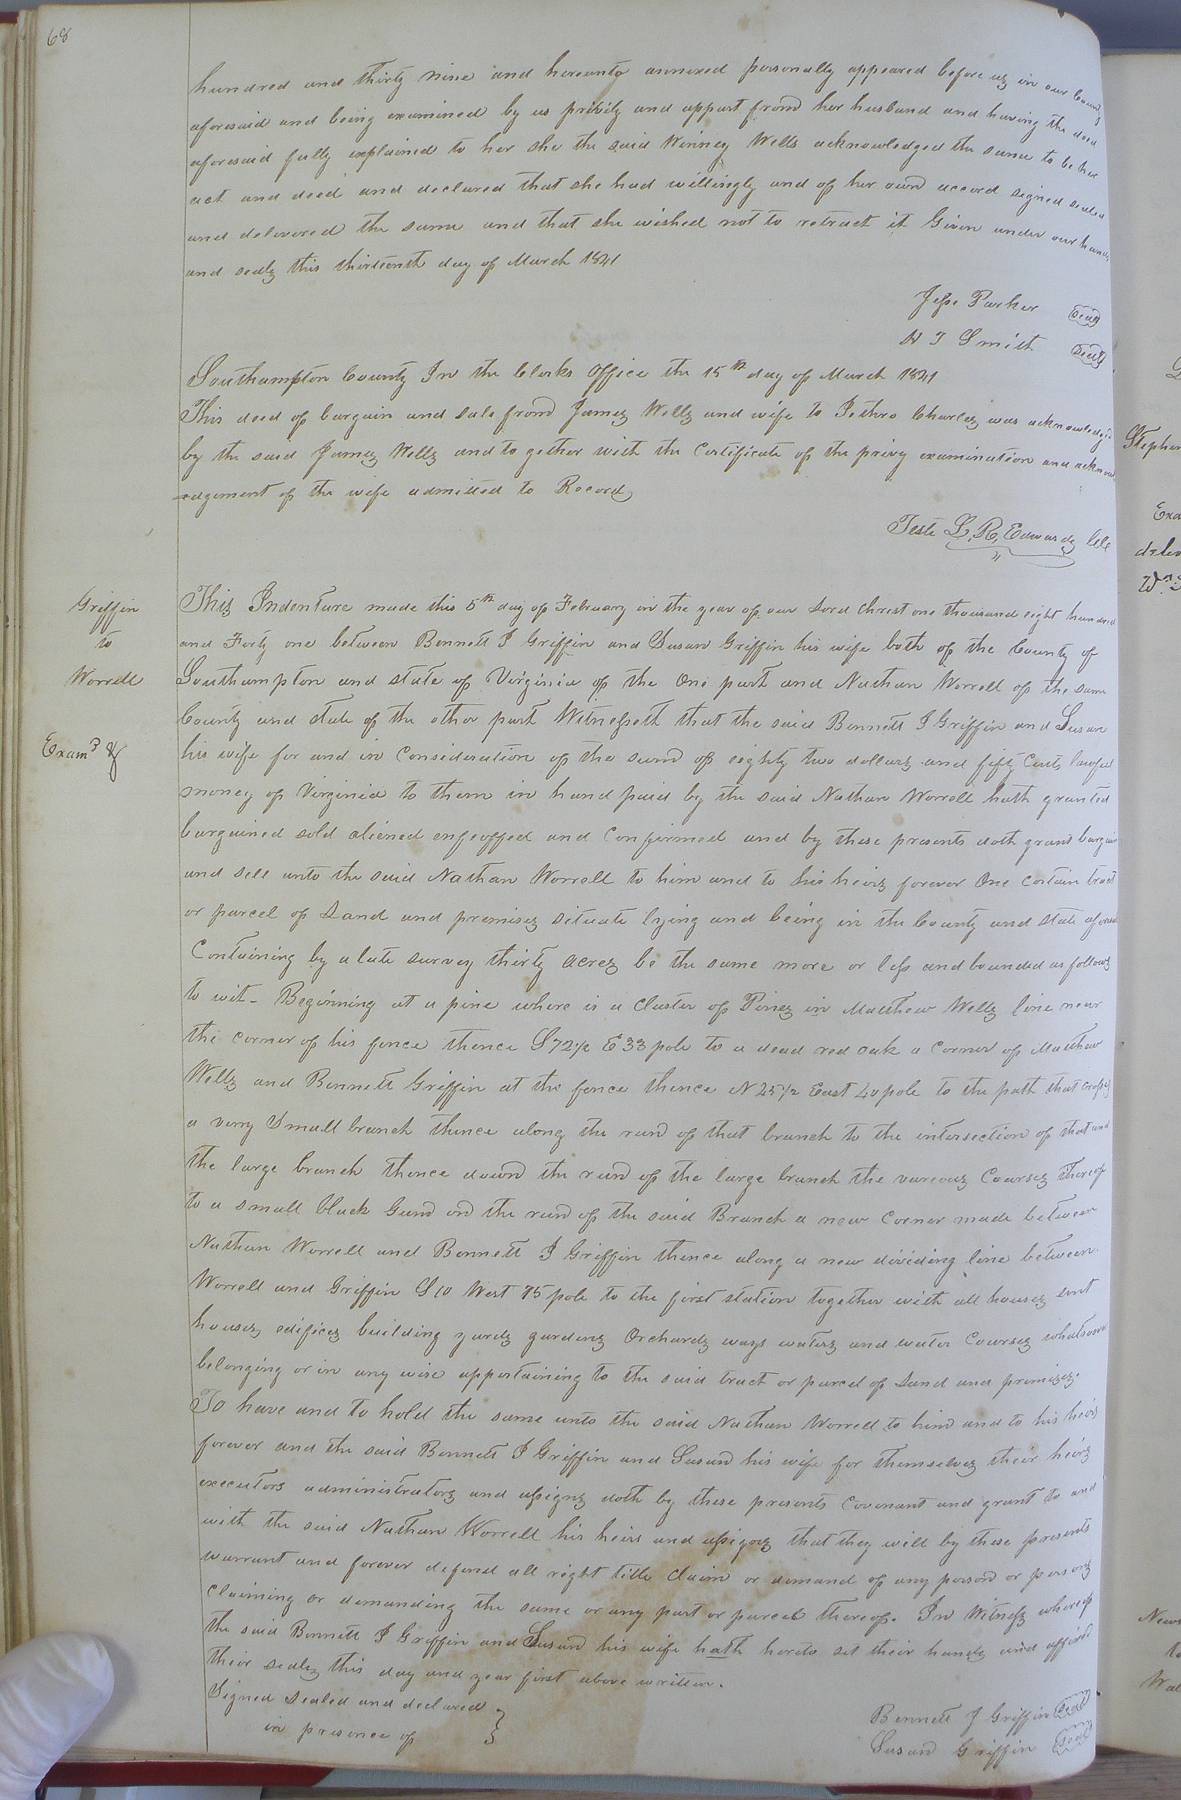 68
hundred and thirty nine and hereunto annexed personally appeared before us in our County
aforesaid and being examined by us privily and appart from her husband and having the deed
aforesaid fully explained to her she the said Winney Wells acknowledged the same to be her
act and deed and declared that she had willingly and of her own accord signed sealed
and delivered the same and that she wished not to retract it Given under our hands
and seals this thirteenth day of March 1841
Jesse Parker Seal
N T Smith Seal
Southampton County In the Clerks Office the 15th day of March 1841
This deed of bargain and sale from James Wells and wife to Jethro Charles was acknowledged
by the said James Wells and to gether with the Certificate of the privy examination and acknowl
edgement of the wife admitted to Record
Teste L. R. Edwards Clk
Griffin
to
Worrell
Examd
This Indenture made this 5th day of February in the year of our Lord Christ one thousand eight hundred
and Forty one between Bennett J Griffin and Susan Griffin his wife both of the County of
Southampton and state of Virginia of the One part and Nathan Worrell of the same
County and state of the other part Witnesseth that the said Bennett J Griffin and Susan
his wife for and in Consideration of the sum of eighty two dollars and fifty Cents lawful
money of Virginia to them in hand paid by the said Nathan Worrell hath granted
bargained sold aliened enfeoffed and Confirmed and by these presents doth grant bargain
and sell unto the said Nathan Worrell to him and to his heirs forever One certain tract
or parcel of Land and premises situate lying and being in the County and state aforesaid
Containing by a late survey thirty acres be the same more or less and bounded as follows
to wit- Beginning at a pine where is a Cluster of Pines in Matthew Wells line near
the corner of his fence thence S 72 1/2 E 33 pole to a dead red oak a Corner of Matthew
Wells and Bennett Griffin at the fence thence N 25 1/2 East 40 pole to the path that crosses
a very Small branch thence along the run of that branch to the intersection of that and
the large branch thence down the run of the large branch the various Courses thereof
to a small black Gum on the run of the said Branch a new Corner made between
Nathan Worrell and Bennett J Griffin thence along a new dividing line between
Worrell and Griffin S 10 West 75 pole to the first station together with all houses out
houses, edifices building yards gardens Orchards ways waters and water Courses whatsoever
belonging or in any wise appertaining to the said tract or parcel of Land and premises.
To have and to hold the same unto the said Nathan Worrell to him and to his heirs
forever and the said Bennett J Griffin and Susan his wife for themselves their heirs
executors administrators and assigns doth by these presents Covenant and grant to and
with the said Nathan Worrell his heirs and assigns that they will by these presents
warrant and forever defend all right title claim or demand of any person or persons
claiming or demanding the same or any part or parcel thereof. In Witness whereof
the said Bennett J Griffin and Susan his wife hath hereto set their hands and affixed
their seals this day and year first above written.
Signed Sealed and declared
in presence of
Bennett J Griffin Seal
Susan Griffin Seal
Stephen
Exa